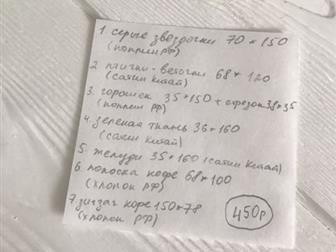 1. серые звездочки 70*150
(поплин рф)
2 птички-веточки 68*120
(сатин китай)
3. горошек 35*150 + отрезок 38*35
(поплин рф)
4. зеленая ткань 36*160
(сатин китай)
5. желуди 35*160 (сатин китай)
6. полоска кофе 68*100
(хлопок рф)
7. зигзаг кофе 150*78
(хлопок рф)
450р